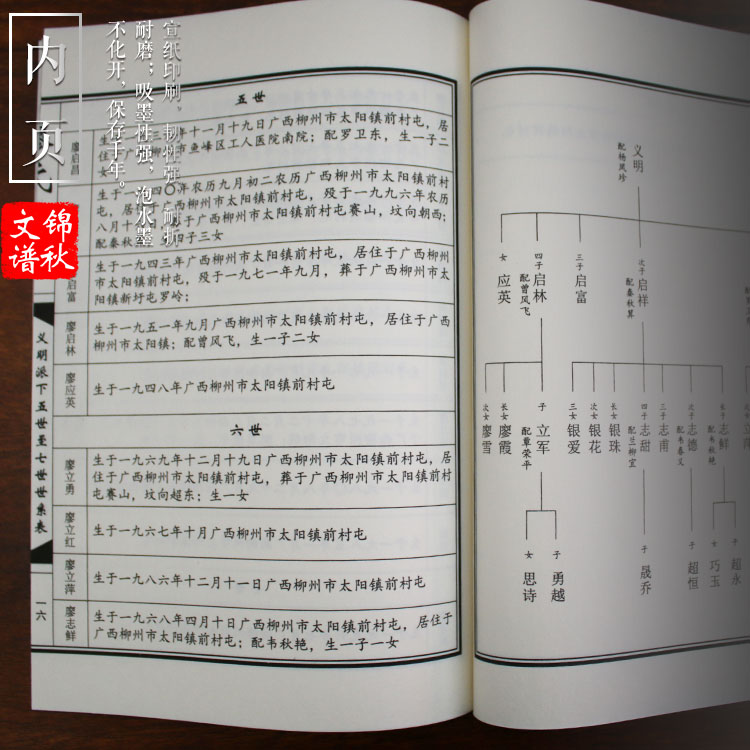 内页
宣纸印刷，韧性强，耐折
耐磨；吸墨性强，泡水墨
不化开，保存千年。
锦秋
文谱
义明派下五世至七世世系表
一六
五世
廖启昌
年十一月十九日广西柳州市太阳镇前村屯，居
市鱼峰区工人医院南院；配罗卫东，生一子二
女
生于一九四〇年农历九月初二农历广西柳州市太阳镇前村
屯，居
太阳镇前村屯，殁于一九九六年农历
八月十
于广西柳州市太阳镇前村屯赛山，坟向朝西；
配秦秋
四子三女
启富
生于一九四三年广西柳州市太阳镇前村屯，居住于广西柳
州市太阳镇前村屯，殁于一九七一年九月，葬于广西柳州市太
阳镇新圩屯罗岭；
廖启林
生于一九五一年九月广西柳州市太阳镇前村屯，居住于广西
柳州市太阳镇；配曾风飞，生一子二女
廖应英
生于一九四八年广西柳州市太阳镇前村屯
六世
廖立勇
生于一九六九年十二月十九日广西柳州市太阳镇前村屯，居
住于广西柳州市太阳镇前村屯，葬于广西柳州市太阳镇前村
屯赛山，坟向超东；生一女
廖立红
生于一九六七年十月广西柳州市太阳镇前村屯
廖立萍
生于一九八六年十二月十一日广西柳州市太阳镇前村屯
廖志鲜
生于一九六八年四月十日广西柳州市太阳镇前村屯，居住于
广西柳州市太阳镇前村屯；配韦秋艳，生一子一女
义明
配杨凤珍
次子 启祥
配秦秋算
三子 启富
四子 启林
配曾风飞
女 应英
立萍
长子 志鲜
配韦秋艳
次子 志德
配韦春义
三子 志甫
四子 志甜
配兰柳宜
长女 银珠
次女 银花
三女 银爱
子 立军
配覃荣平
长女 廖霞
次女 廖雪
子 超永
女 巧玉
子 超恒
子 晟乔
子 勇越
女 思诗